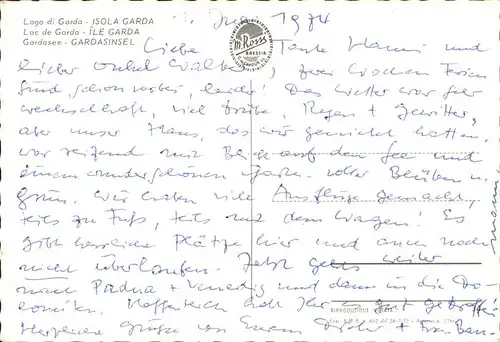 Lago di Garda - ISOLA GARDA
Lac de Garda - ÎLE GARDA
Gardasee - GARDASINSEL
M. Rossi
BRESCIA
1974
Liebe Tante Hanni und
lieber Onkel Walter, zwei Wochen Ferien
sind schon vorbei, leider! Das Wetter war sehr
wechselhaft, viel trübe, Regen + Gewitter,
aber unser Haus, das wir gemietet hatten,
war reizend mit Blick auf den See und
einem wunderschönen Garten voller Blüten u.
Grün. Wir haben viele Ausflüge gemacht,
teils zu Fuß, teils mit dem Wagen! Es
gibt herrliche Plätze hier und auch noch
nicht überlaufen. Jetzt geht's weiter
nach Padua + Venedig und dann in die Do-
lomiten. Hoffentlich habt Ihr's gut getroffen
Herzliche Grüße von Euern
RIPRODUZIONE